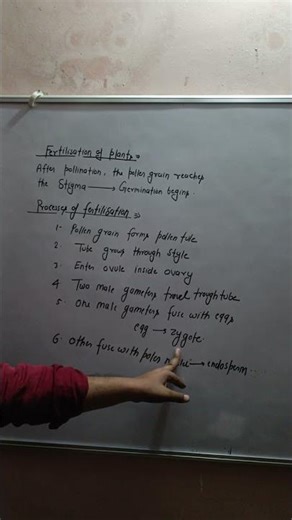 Fertilisation of plants =
After pollination, the pollen grain reaches
the Stigma → Germination begins
Processes of fertilisation :-
1. Pollen grain forms pollen tube
2. Tube grows through style
3. Enter ovule inside ovary
4. Two male gameters travel trough tube
5. One male gameters fuse with eggs
egg → zygote.
6. Other fuse with poler → endosperm..